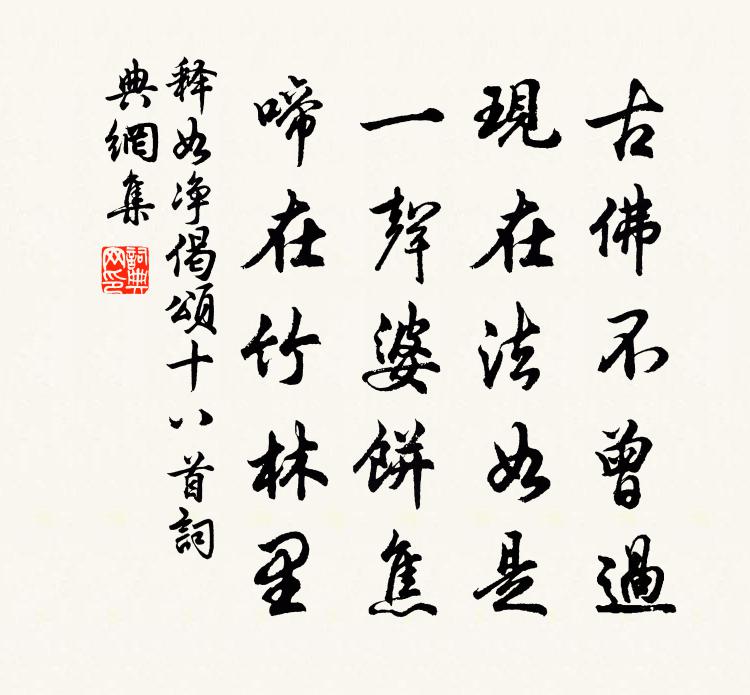 古佛不曾過
現在法如是
一聲婆餅焦
啼在竹林里
释如净偈頌十八首詞
典網集
詞典網印